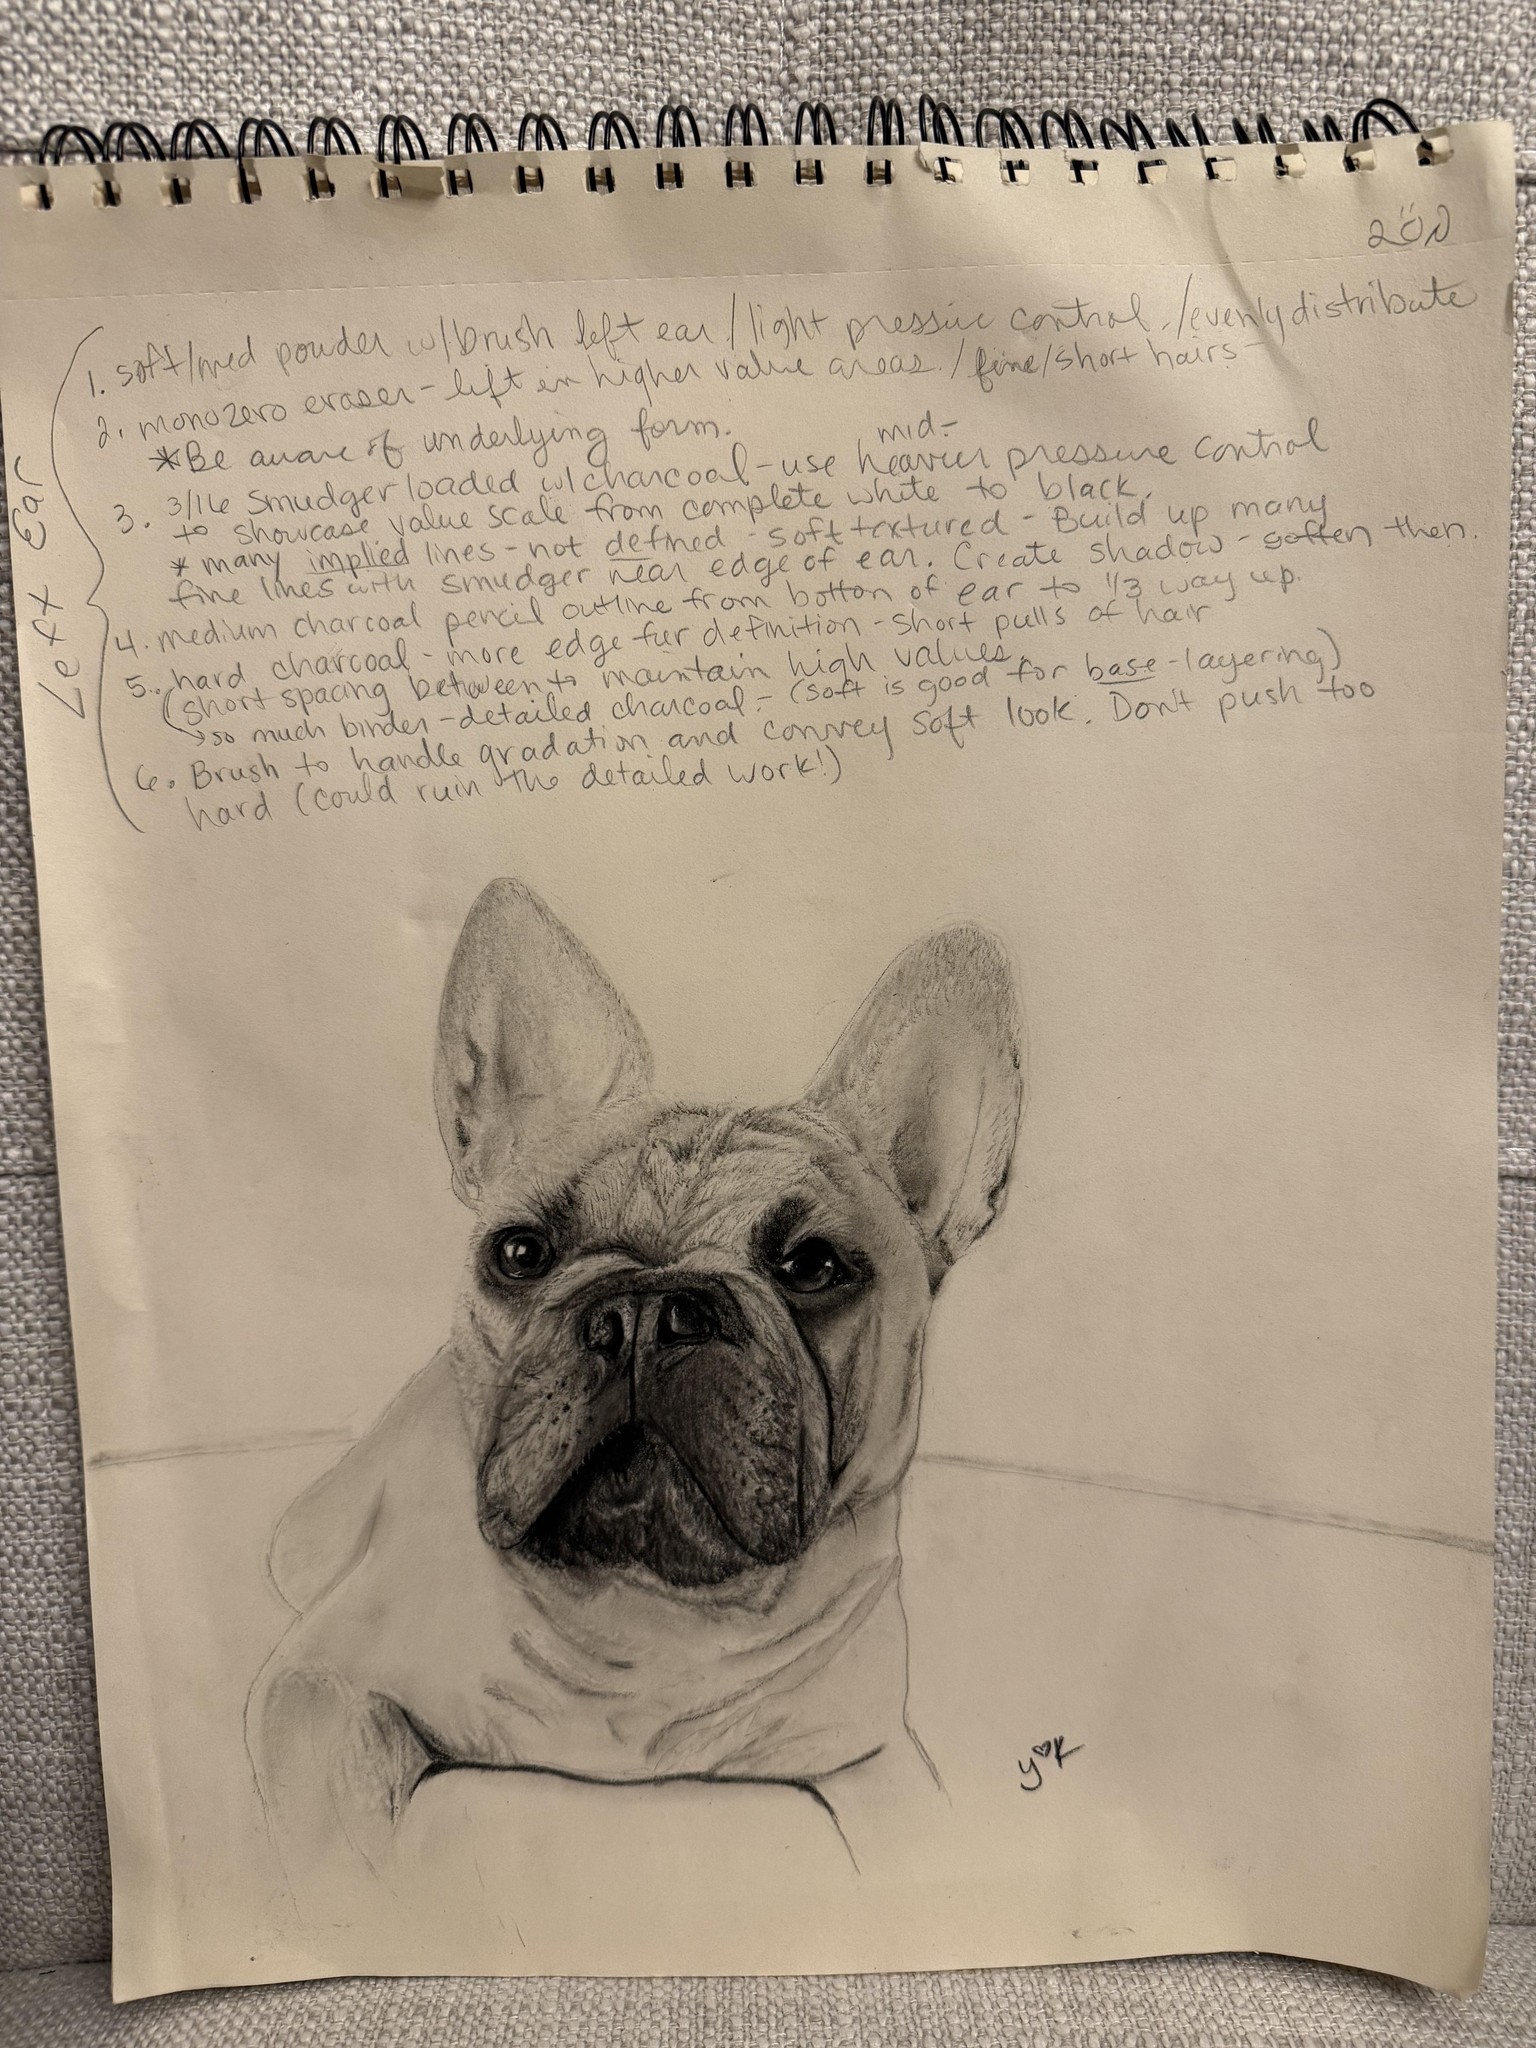 Left Ear
1. soft/med powder w/brush left ear/light pressure control./evenly distribute
2. monozero eraser - lift in higher value areas./fine/short hairs -
*Be aware of underlying form.
mid-
3. 3/16 smudger loaded w/charcoal - use heavier pressure control
to showcase value scale from complete white to black.
* many implied lines - not defined - soft textured - Build up many
fine lines with smudger near edge of ear. Create shadow - soften then.
4. medium charcoal pencil outline from bottom of ear to 1/3 way up.
5. hard charcoal - more edge fur definition - short pulls of hair
(short spacing between to maintain high values.
↳so much binder - detailed charcoal - (soft is good for base - layering)
6. Brush to handle gradation and convey soft look. Don't push too
hard (could ruin the detailed work!)
y♥K